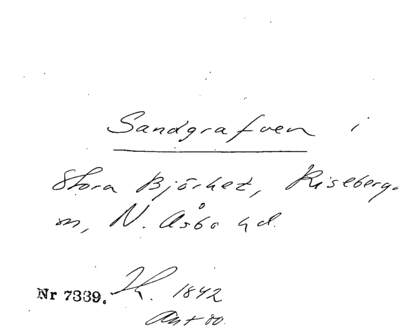 Sandgrafven i
Stora Bjärhet, Riseberga
sn, N. Åsbo hd.
Nr 7339. K. 1842
Ant 00.